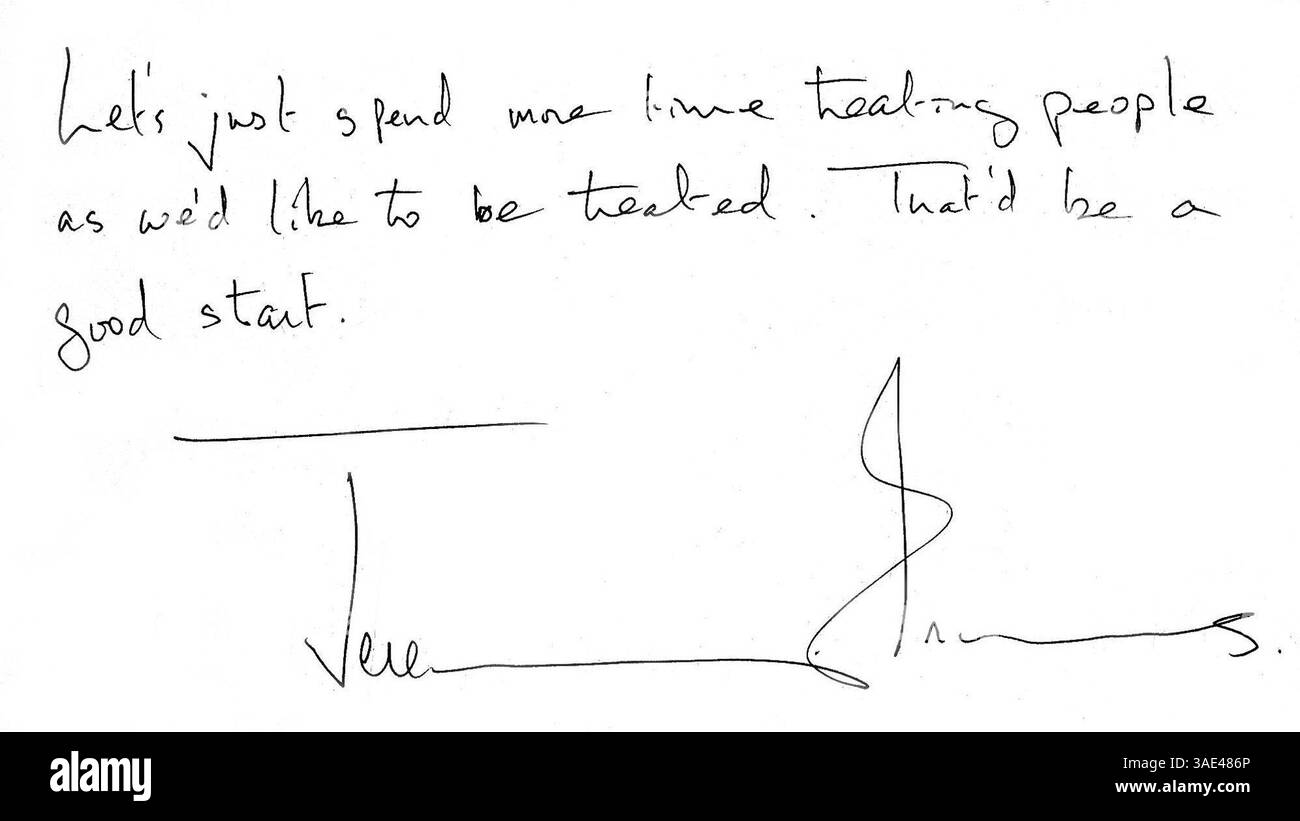 Let's just spend more time treating people
as we'd like to be treated. That'd be a
good start.
Jere
alamy
Image ID: 3AE486P
www.alamy.com